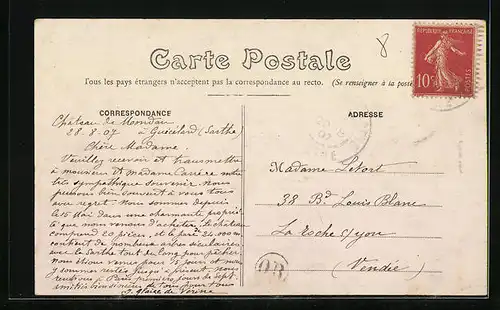 8
Carte Postale
Tous les pays étrangers n'acceptent pas la correspondance au recto. (Se renseigner à la poste
REPUBLIQUE FRANÇAISE
10c
POSTES
CORRESPONDANCE
ADRESSE
Château de
28.8.07 à Guécélard (Sarthe)
Chère Madame.
Veuillez recevoir et transmettre
à monsieur et madame Carré ma
très sympathique souvenir. Nous
pensons bien souvent à vous tous
avec regret. Nous sommes depuis
le 15 Mai dans une charmante proprié-
té que nous venons d'acheter, le château
comprend 20 pièces, et le parc 24.000 m
contient de nombreux arbres séculaires
avec la Sarthe tout le long pour pêcher.
Nous étions venus pour 15 jours et nous
y sommes restés jusqu'à présent. Nous
rendrons à Paris premiers jours de Sept.
amitiés de nous tous pour tous
Madame Létort
38 Bd. Louis Blanc
La Roche s/yon
(Vendée)
OR